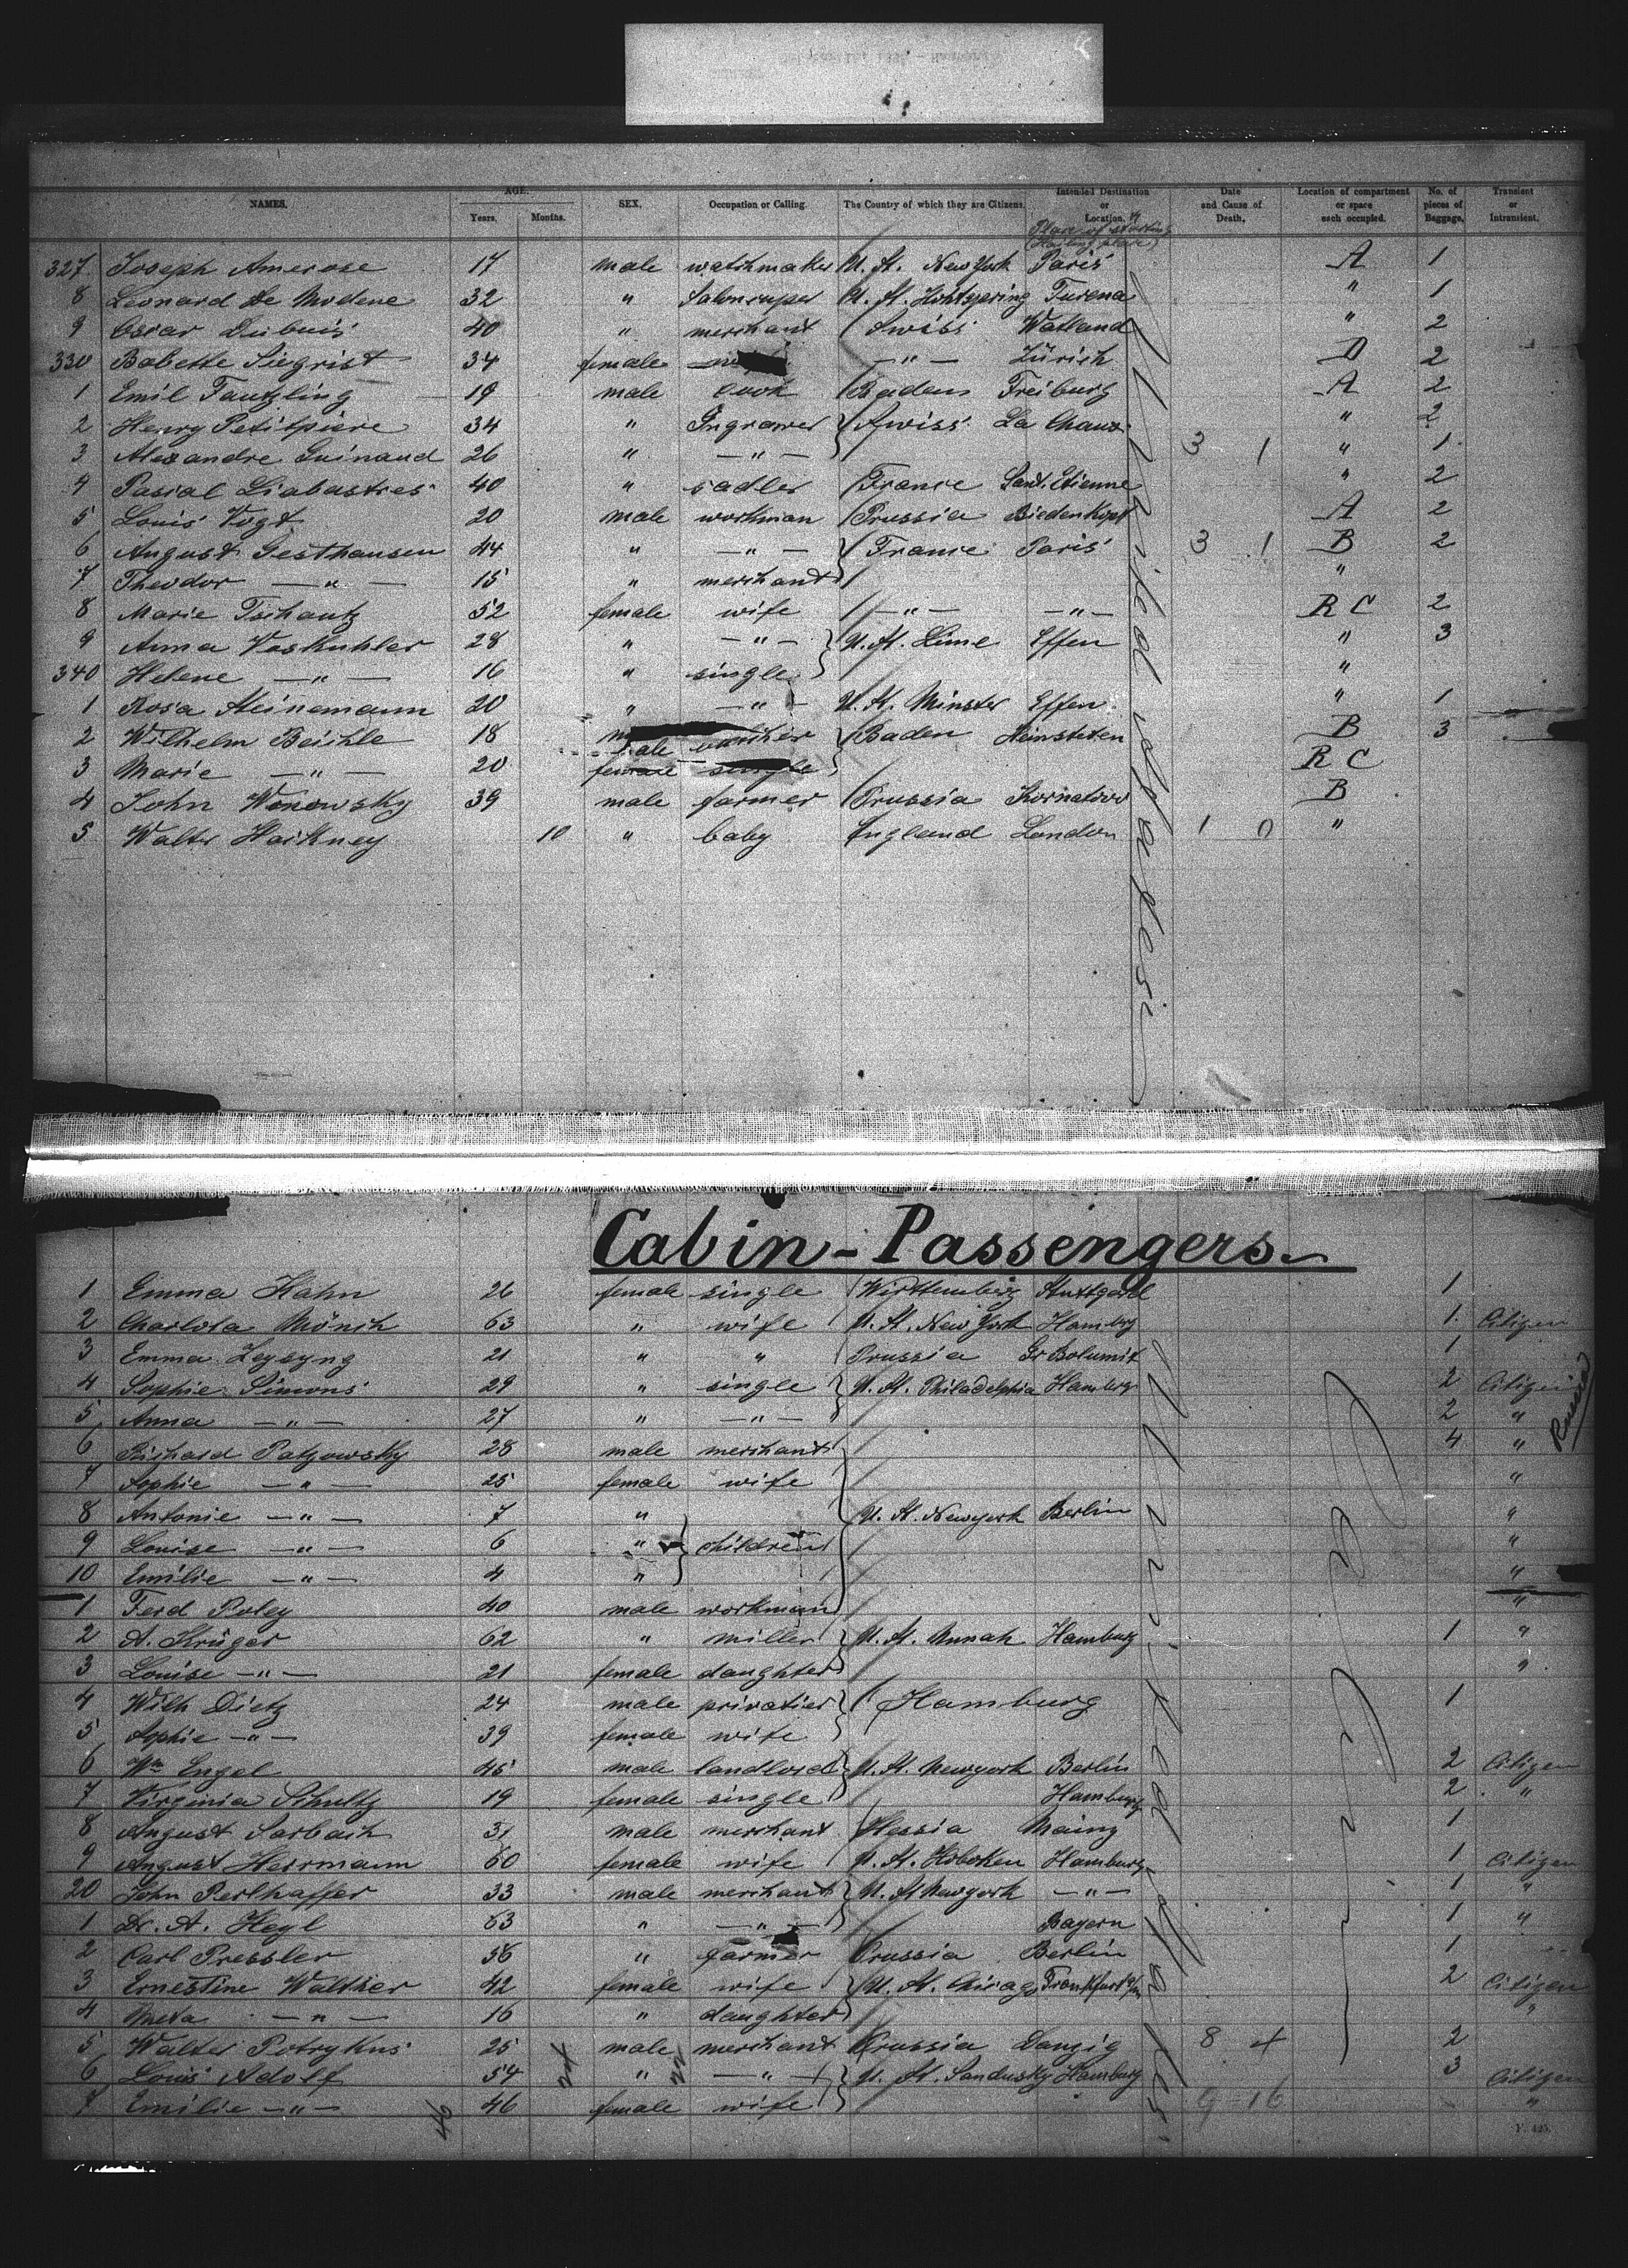 NAMES. AGE. Years. Months. SEX. Occupation or Calling. The Country of which they are Citizens. Intended Destination or Location. Date and Cause of Death. Location of compartment or space each occupied. No. of pieces of Baggage. Transient or Intransient.
Place of starting
327 Joseph Amerose 17 male watchmaker U. St. New York Paris A 1
8 Leonard De Modene 32 " U. St. Turena " 1
9 Oscar Dubuis 40 " merchant Swiss Watland " 2
330 Babette Siegrist 34 female — " — Zürich D 2
1 Emil Tanzling 19 male cook Baden Freiburg A 2
2 Henry Petitpiere 34 " Ingrawer Swiss La Chaux " 2
3 Alexandre Guinand 26 " — " — 3 1 " 1
4 Pascal Liabastres 40 " sadler France Sant. Etienne " 2
5 Louis Vogt 20 male workman Prussia Biedenkopf A 2
6 August Gesthausen 44 " — " — France Paris 3 1 B 2
7 Theodor — " — 15 " merchant "
8 Marie Tschantz 52 female wife — " — — " — R C 2
9 Anna Voskuhler 28 " — " — U. St. Lime Essen " 3
340 Helene — " — 16 " single "
1 Rosa Steinemann 20 " — " — U. St. Minster Essen " 1
2 Wilhelm Beichle 18 male Baden Heinsteten B 3
3 Marie — " — 20 female single R C
4 John Wonowsky 39 male farmer Prussia Kornatowo B
5 Walter Harkney 10 " baby England London 1 0 "
United States
Cabin-Passengers
1 Emma Hahn 26 female single Württemberg Stuttgard 1
2 Charlota Mönch 63 " wife U. St. New York Hamburg 1 Citizen
3 Emma Zeysyng 21 " " Prussia Gr Bolumin 1
4 Sophie Simons 29 " single U. St. Philadelphia Hamburg 2 Citizen
5 Anna — " — 27 " — " — 2 "
6 Richard Patzowsky 28 male merchant 4 "
7 Sophie — " — 25 female wife "
8 Antonie — " — 7 " U. St. Newyork Berlin "
9 Louise — " — 6 " children "
10 Emilie — " — 4 " "
1 Ferd Poley 40 male workman "
2 A. Krüger 62 " miller U. St. Hamburg 1 "
3 Louise — " — 21 female daughter "
4 Wilh Dietz 24 male privatier Hamburg 1
5 Sophie — " — 39 female wife
6 Wm Engel 45 male landlord U. St. Newyork Berlin 2 Citizen
7 Virginia Schultz 19 female single Hamburg 2 "
8 August Sarbach 31 male merchant Hessia Mainz 1
9 August Herrmann 60 female wife U. St. Hoboken Hamburg 1 Citizen
20 John Perlhaffer 33 male merchant U. St Newyork — " — 1 "
1 Dr. A. Heyl 63 " — " — Bayern 1 "
2 Carl Pressler 56 " farmer Prussia Berlin 1
3 Ernestine Walther 42 female wife U. St. Chicago Frankfurt a/m 2 Citizen
4 Meta — " — 16 " daughter "
5 Walter Potrykus 25 male merchant Prussia Danzig 8 4 2
6 Louis Adolf 54 " — " — U. St. Sandusky Hamburg 3 Citizen
7 Emilie — " — 46 female wife 9 16 "
United States
46